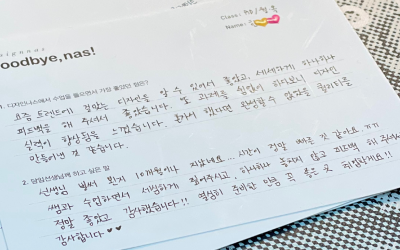 Class: 취/월목
Name:
signnas
oodbye,nas!
1. 디자인나스에서 수업을 들으면서 가장 좋았던 점은?
요즘 트렌드에 걸맞는 디자인을 알 수 있어서 좋았고, 세세하게 하나하나
피드백을 해 주셔서 좋았습니다. 또 과제를 쉴없이 하다보니 디자인
실력이 향상됨을 느꼈습니다. 혼자서 했다면 완성할 수 없었을 퀄리티를
만들어낸 것 같습니다.
2. 담임선생님께 하고 싶은 말
선생님 벌써 완지 10개월이나 지났네요...시간이 정말 빠른 것 같아요.ㅠㅠ
쌤과 수업하면서 섬세하게 짚어주시고, 하나하나 놓치지 않고 피드백 해 주셔서
정말 좋았고 감사했습니다!! 열심히 준비한 만큼 꼭 좋은 곳 취업할게요!!
감사합니다 ♥♥